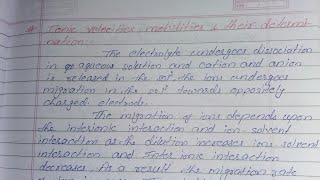 # Ionic velocities, mobilities & their determi-
nation:-
The electrolyte undergoes dissociation
in aqueous solution and cation and anion
is released in the solⁿ, the ions undergoes
migration in the solⁿ towards oppositely
charged electrode.
The migration of ions depends upon
the interionic interaction and ion-solvent
interaction as the dilution increases ion-solvent
interaction and Inter ionic interaction
decreases. As a result the migration rate